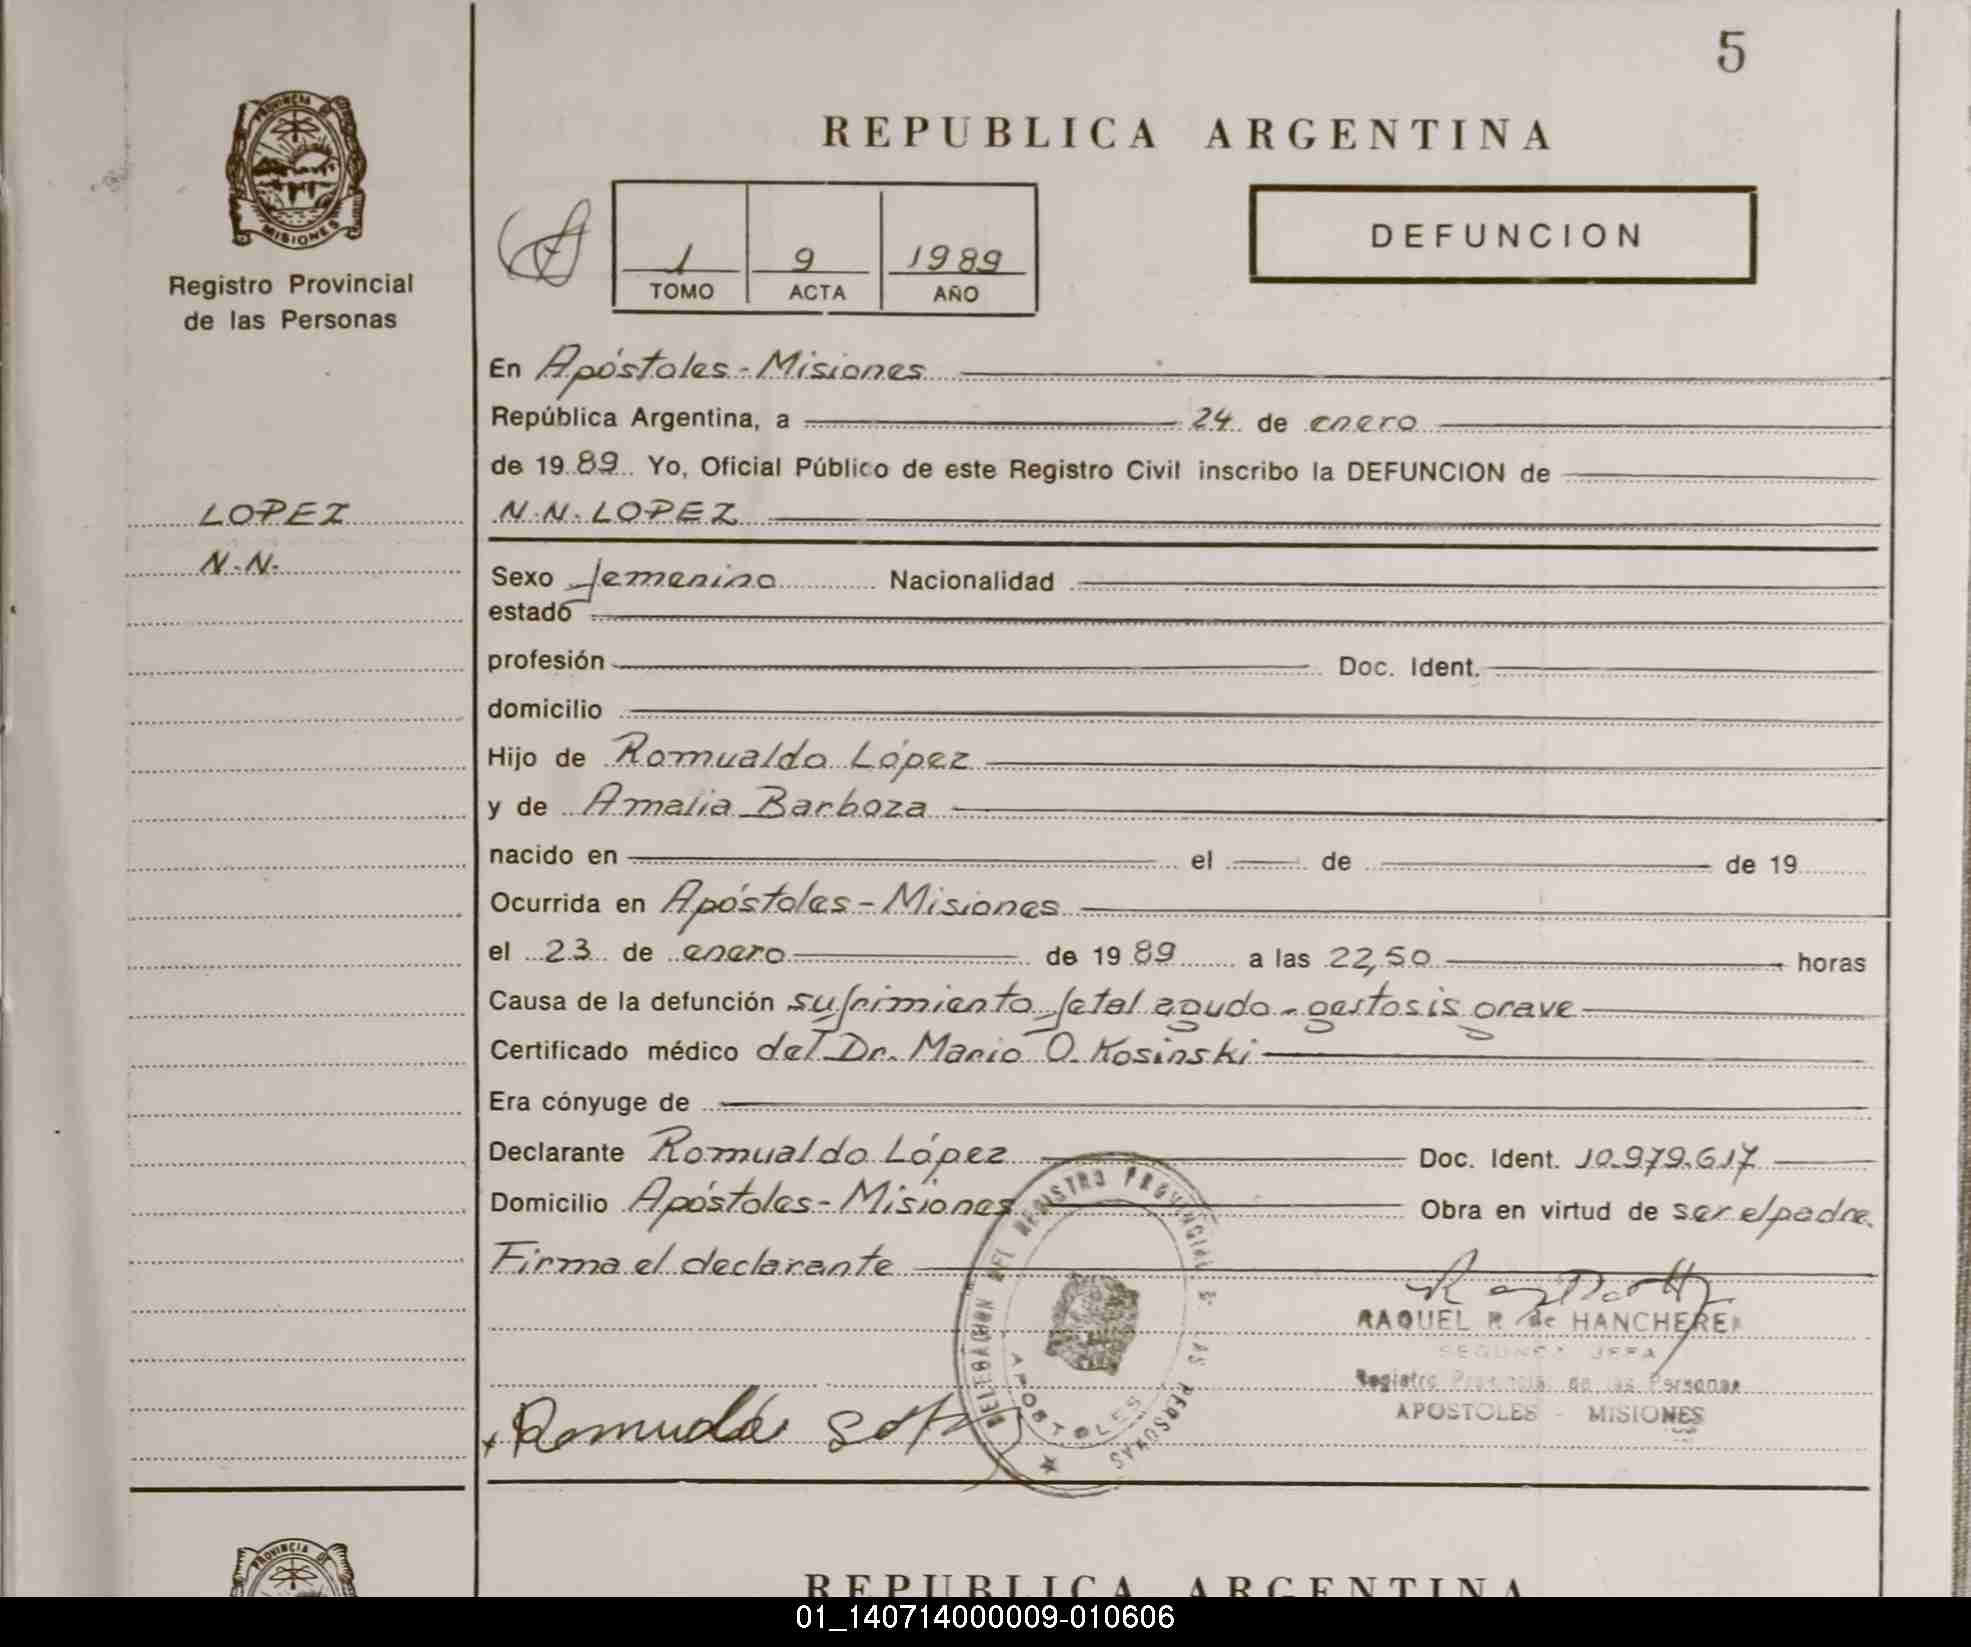 5
PROVINCIA DE
MISIONES
Registro Provincial
de las Personas
REPUBLICA ARGENTINA
1 9 1989
TOMO ACTA AÑO
DEFUNCION
LOPEZ
N.N.
En Apóstoles - Misiones
República Argentina, a 24 de enero
de 19 89 Yo, Oficial Público de este Registro Civil inscribo la DEFUNCION de
N.N. LOPEZ
Sexo femenino Nacionalidad
estado
profesión Doc. Ident.
domicilio
Hijo de Romualdo López
y de Amalia Barboza
nacido en el de de 19
Ocurrida en Apóstoles - Misiones
el 23 de enero de 19 89 a las 22,50 horas
Causa de la defunción sufrimiento fetal agudo - gestosis grave
Certificado médico del Dr. Mario O. Kosinski
Era cónyuge de
Declarante Romualdo López Doc. Ident. 10.979.617
Domicilio Apóstoles - Misiones Obra en virtud de ser el padre.
Firma el declarante
DELEGACION DEL REGISTRO PROVINCIAL DE LAS PERSONAS
APOSTOLES
RAQUEL R. de HANCHERE
SEGUNDA JEFA
Registro Provincial de las Personas
APOSTOLES - MISIONES
PROVINCIA DE
REPUBLICA ARGENTINA
01_140714000009-010606